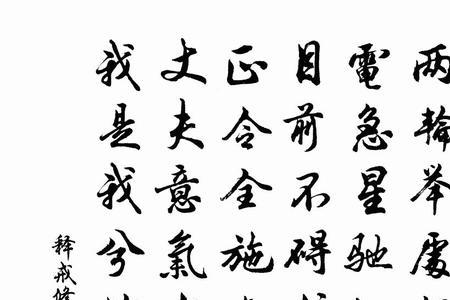 两輪举處
電急星馳
目前不礙
正令全施
丈夫意氣
我是我兮
释戒修